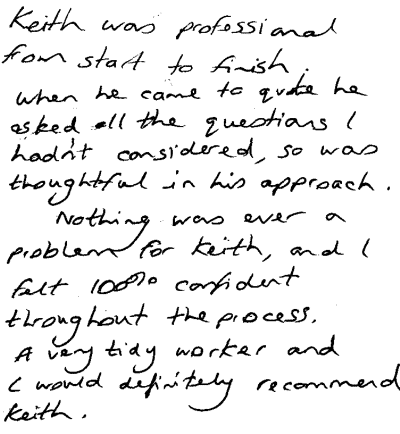 Keith was professional
from start to finish.
When he came to quote he
asked all the questions I
hadn't considered, so was
thoughtful in his approach.
Nothing was ever a
problem for Keith, and I
felt 100% confident
throughout the process.
A very tidy worker and
I would definitely recommend
Keith.